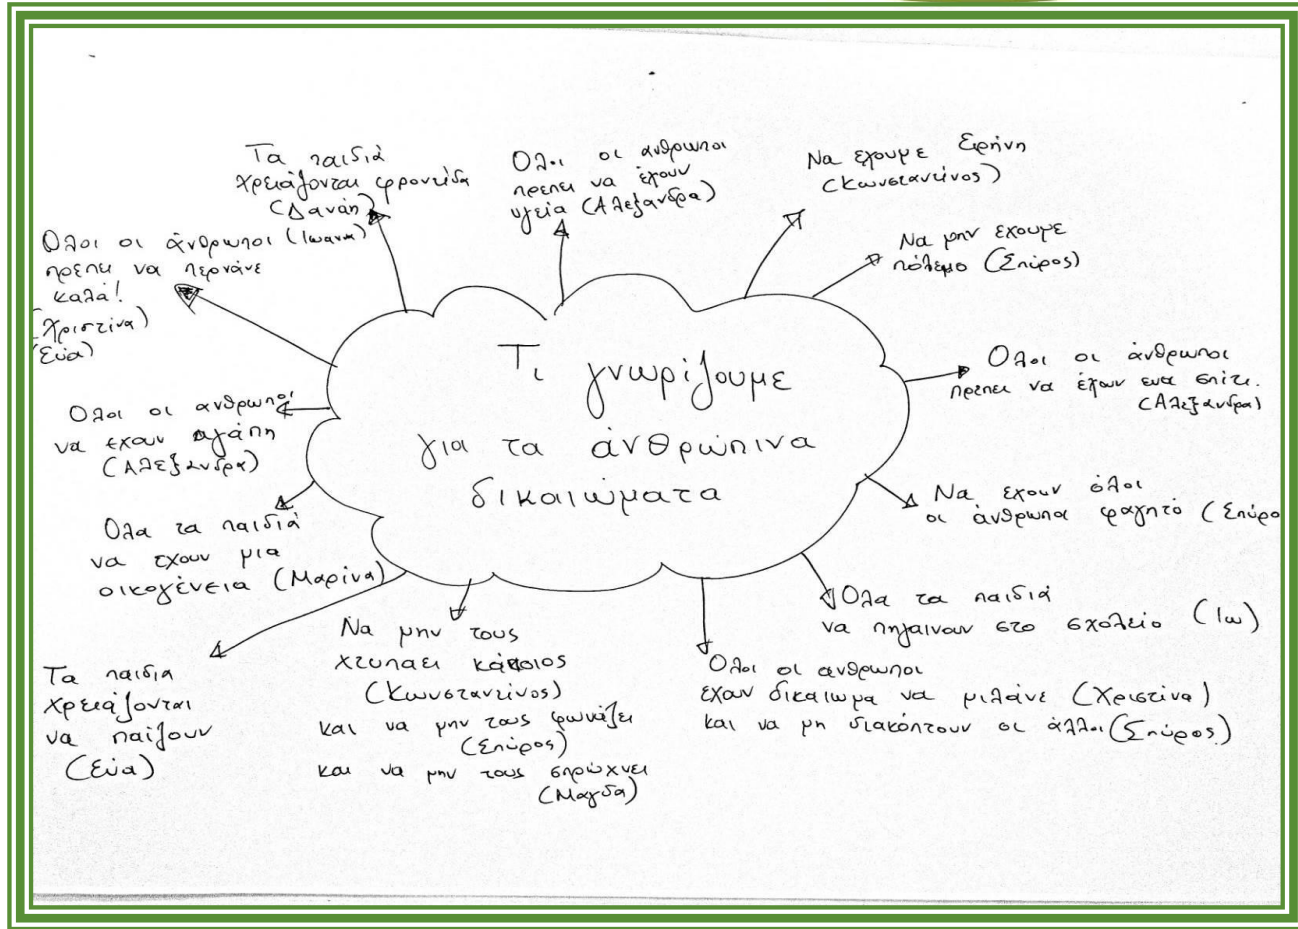 Τι γνωρίζουμε
για τα άνθρώπινα
δικαιώματα
Τα παιδιά
χρειάζονται φροντίδα
(Δανάη)
(Ιωάννα)
Ολοι οι άνθρωποι
πρέπει να έχουν
υγεία (Αλεξάνδρα)
Να έχουμε Ειρήνη
(Κωνσταντίνος)
Να μην έχουμε
πόλεμο (Σπύρος)
Ολοι οι άνθρωποι
πρέπει να έχουν ενα σπίτι.
(Αλεξάνδρα)
Να έχουν όλοι
οι άνθρωποι φαγητό (Σπύρο
Ολα τα παιδιά
να πηγαίνουν στο σχολείο (Ιω)
Ολοι οι ανθρωποι
έχουν δικαιωμα να μιλάνε (Χριστίνα)
και να μη διακόπτουν οι άλλοι (Σπύρος)
Να μην τους
χτυπαει κάποιος
(Κωνσταντίνος)
και να μην τους φωνάζει
(Σπύρος)
και να μην τους σπρώχνει
(Μαγδα)
Τα παιδιά
χρειάζονται
να παίζουν
(Εύα)
Ολα τα παιδιά
να έχουν μια
οικογένεια (Μαρίνα)
Ολοι οι ανθρωποι
να έχουν αγάπη
(Αλεξάνδρα)
Ολοι οι άνθρωποι
πρέπει να περνάνε
καλά!
(Χριστίνα)
(Εύα)